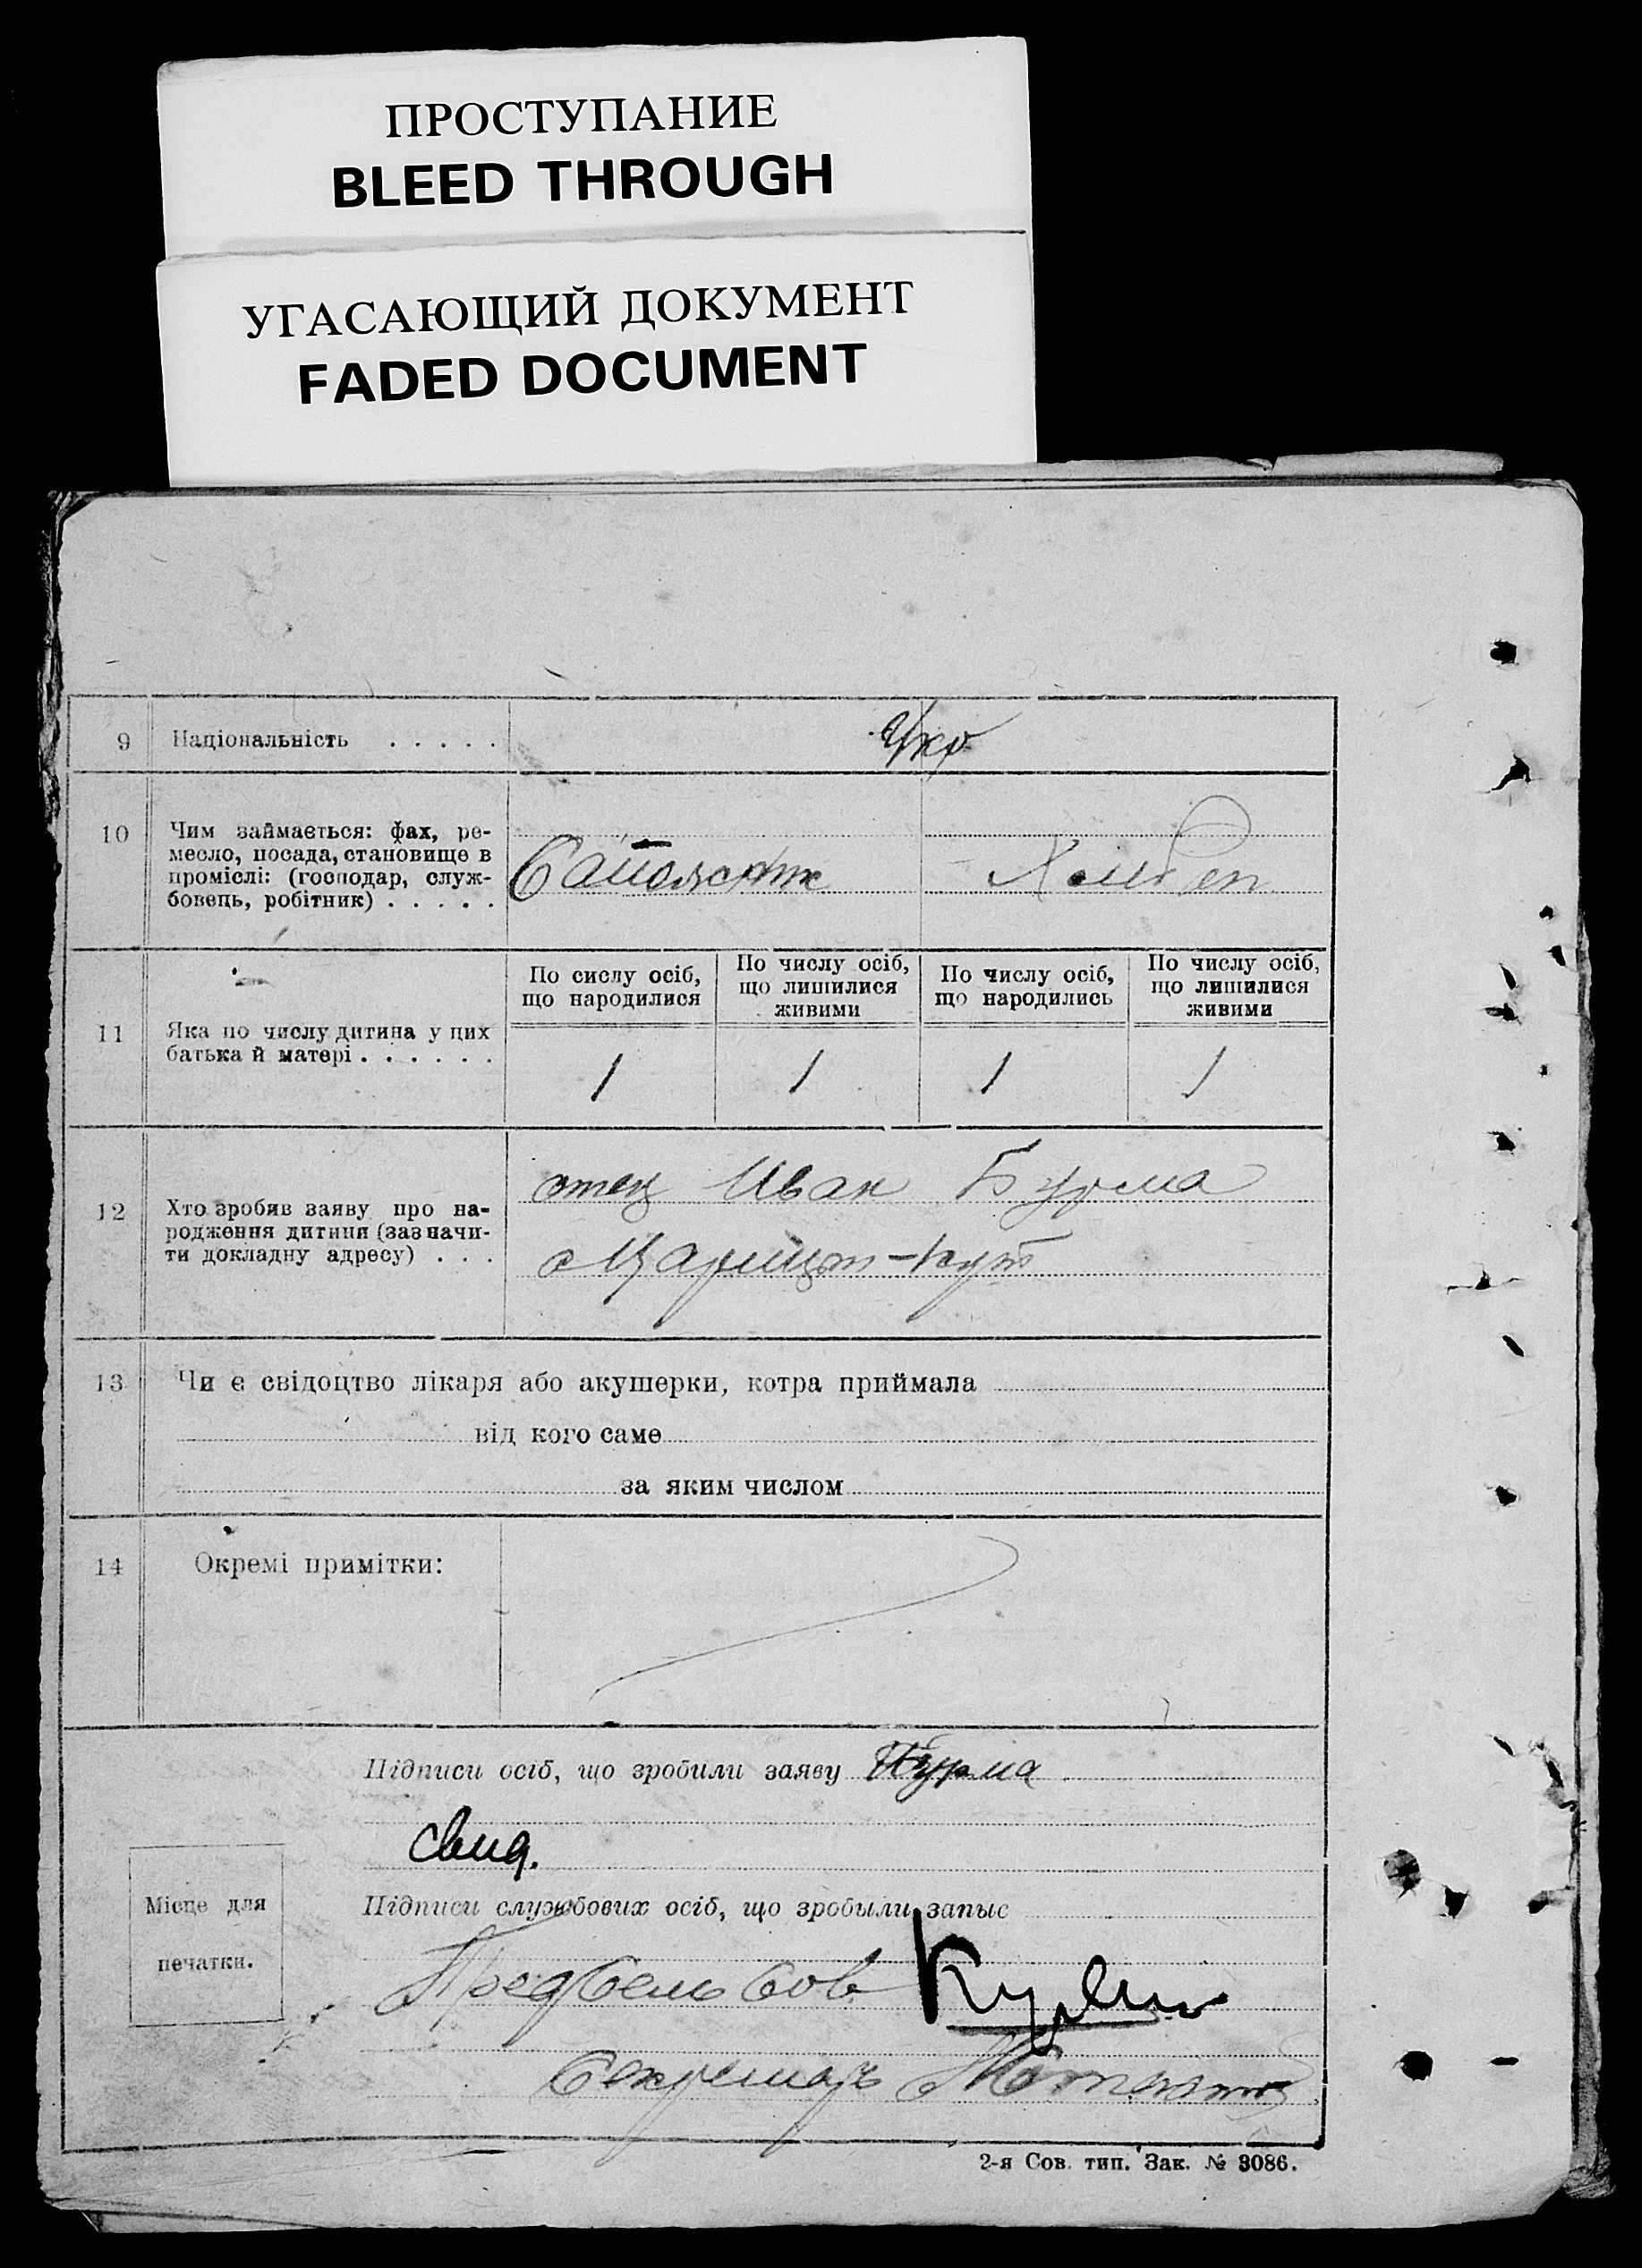 ПРОСТУПАНИЕ
BLEED THROUGH
УГАСАЮЩИЙ ДОКУМЕНТ
FADED DOCUMENT
9 Національність . . . . . Укр
10 Чим займається: фах, ре-
месло, посада, становище в
проміслі: (господар, служ-
бовець, робітник) . . . . .
По сислу осіб,
що народилися
По числу осіб,
що лишилися
живими
По числу осіб,
що народились
По числу осіб,
що лишилися
живими
11 Яка по числу дитина у цих
батька й матері . . . . . .
1 1 1 1
12 Хто зробив заяву про на-
родження дитини (зазначи-
ти докладну адресу) . . .
отец Иван Бурма
13 Чи є свідоцтво лікаря або акушерки, котра приймала
від кого саме
за яким числом
14 Окремі примітки:
Підписи осіб, що зробили заяву Бурма
свид.
Місце для
печатки.
Підписи службових осіб, що зробыли запыс
Пред Сель Сов
Секретарь
2-я Сов. тип. Зак. № 3086.